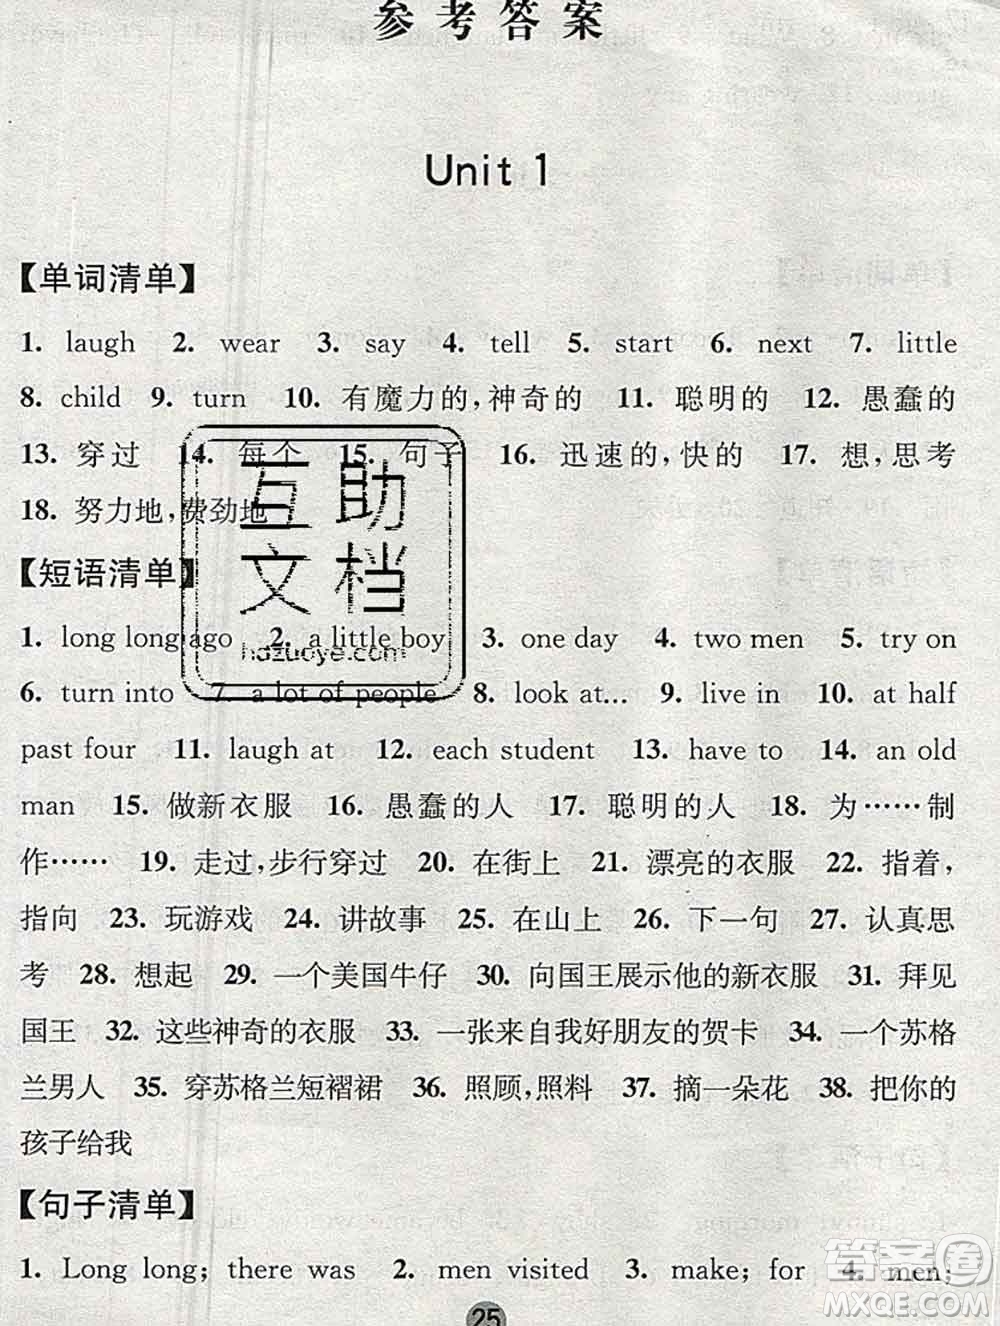 参考答案
Unit 1
【单词清单】
1. laugh 2. wear 3. say 4. tell 5. start 6. next 7. little
8. child 9. turn 10. 有魔力的,神奇的 11. 聪明的 12. 愚蠢的
13. 穿过 14. 每个 15. 句子 16. 迅速的,快的 17. 想,思考
18. 努力地,费劲地
【短语清单】
1. long long ago 2. a little boy 3. one day 4. two men 5. try on
6. turn into 7. a lot of people 8. look at… 9. live in 10. at half
past four 11. laugh at 12. each student 13. have to 14. an old
man 15. 做新衣服 16. 愚蠢的人 17. 聪明的人 18. 为……制
作…… 19. 走过,步行穿过 20. 在街上 21. 漂亮的衣服 22. 指着,
指向 23. 玩游戏 24. 讲故事 25. 在山上 26. 下一句 27. 认真思
考 28. 想起 29. 一个美国牛仔 30. 向国王展示他的新衣服 31. 拜见
国王 32. 这些神奇的衣服 33. 一张来自我好朋友的贺卡 34. 一个苏格
兰男人 35. 穿苏格兰短褶裙 36. 照顾,照料 37. 摘一朵花 38. 把你的
孩子给我
【句子清单】
1. Long long; there was 2. men visited 3. make; for 4. men;
25
互助
文档
hazuoye.com
答案圈
MXQE.COM